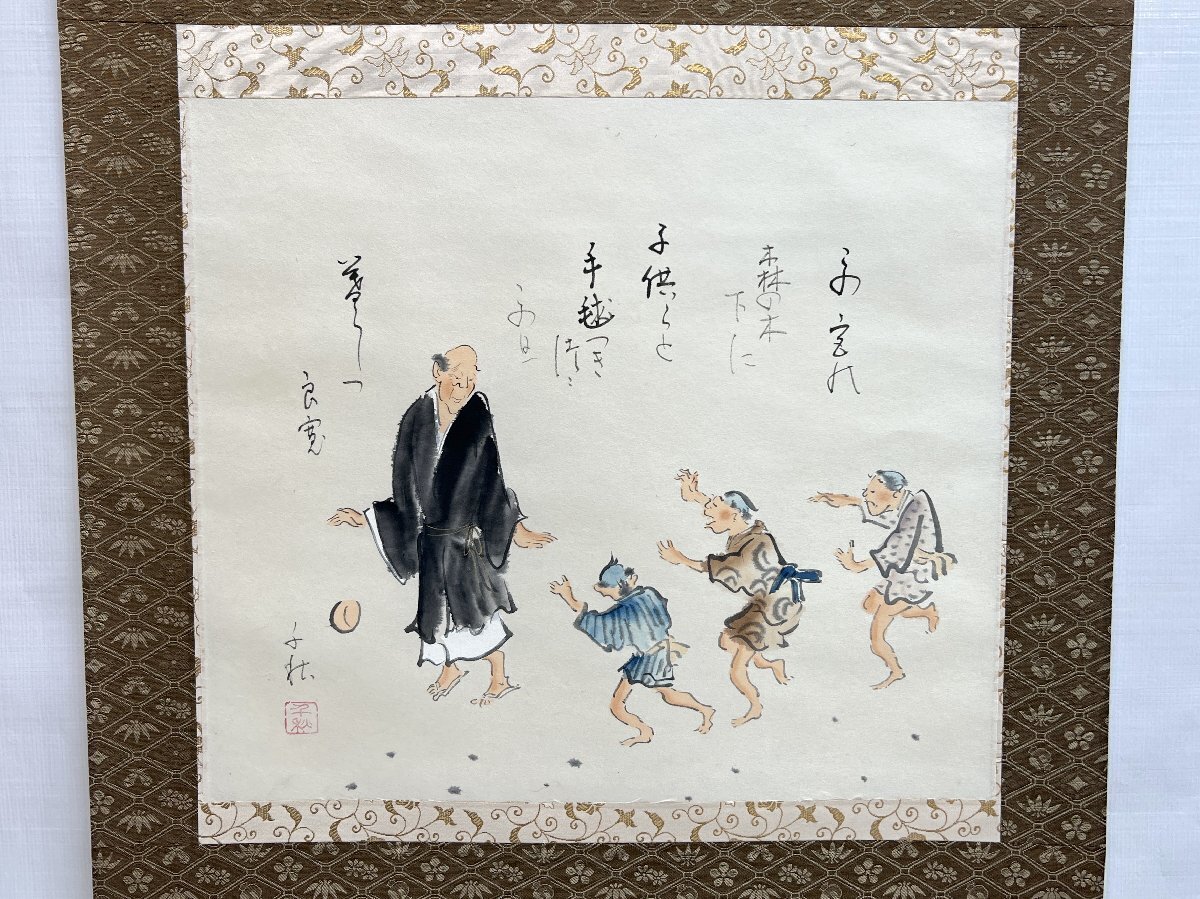 この宮の
森の木
下に
子供らと
手毬つき
つゝ
この日
暮らしつ
良寛
千秋
千秋